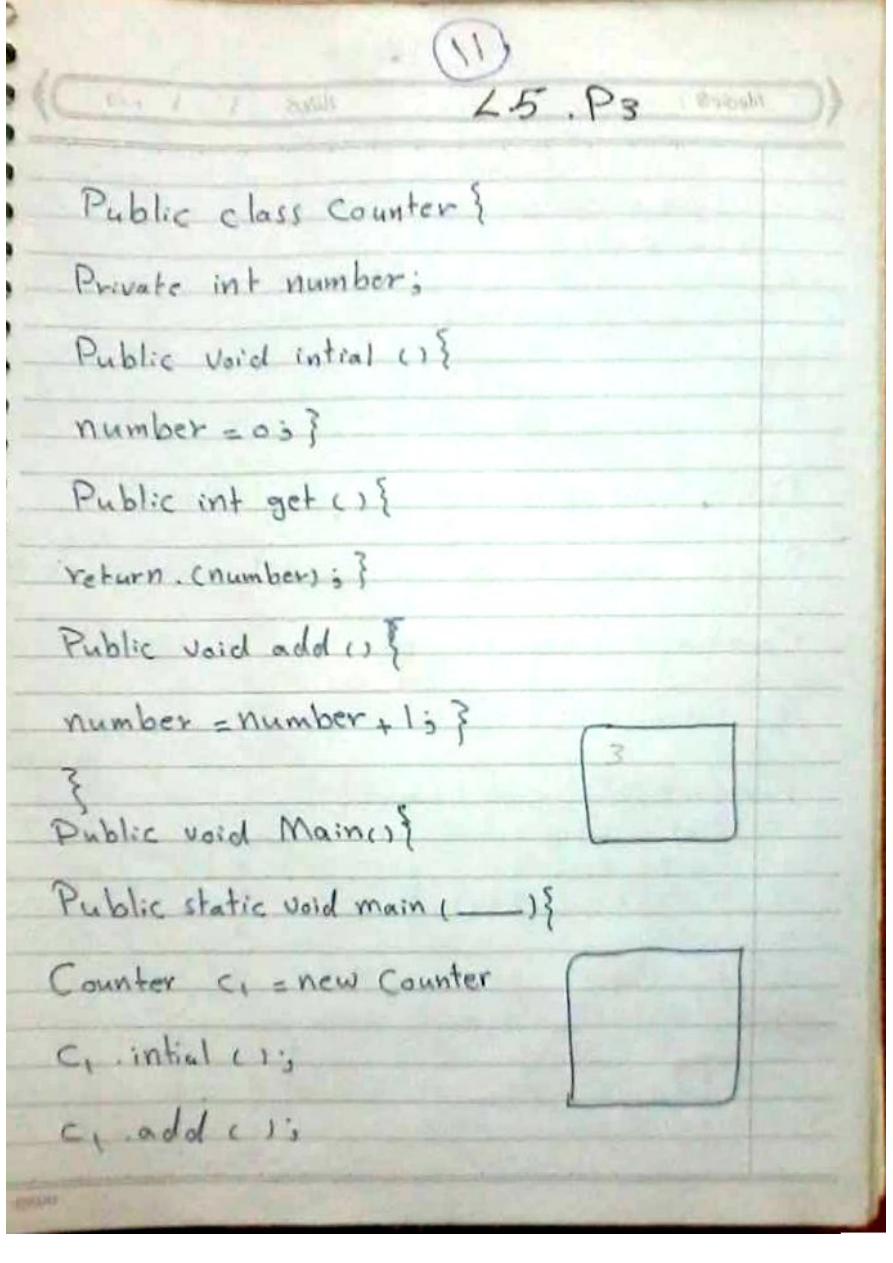 ١١
L5 . P3
Public class Counter {
Private int number;
Public void intial () {
number = 0; }
Public int get () {
return . (number) ; }
Public void add () {
number = number + 1; }
}
3
Public void Main() {
Public static void main ( ___ ) {
Counter c1 = new Counter
c1 . intial ( );
c1 . add ( );